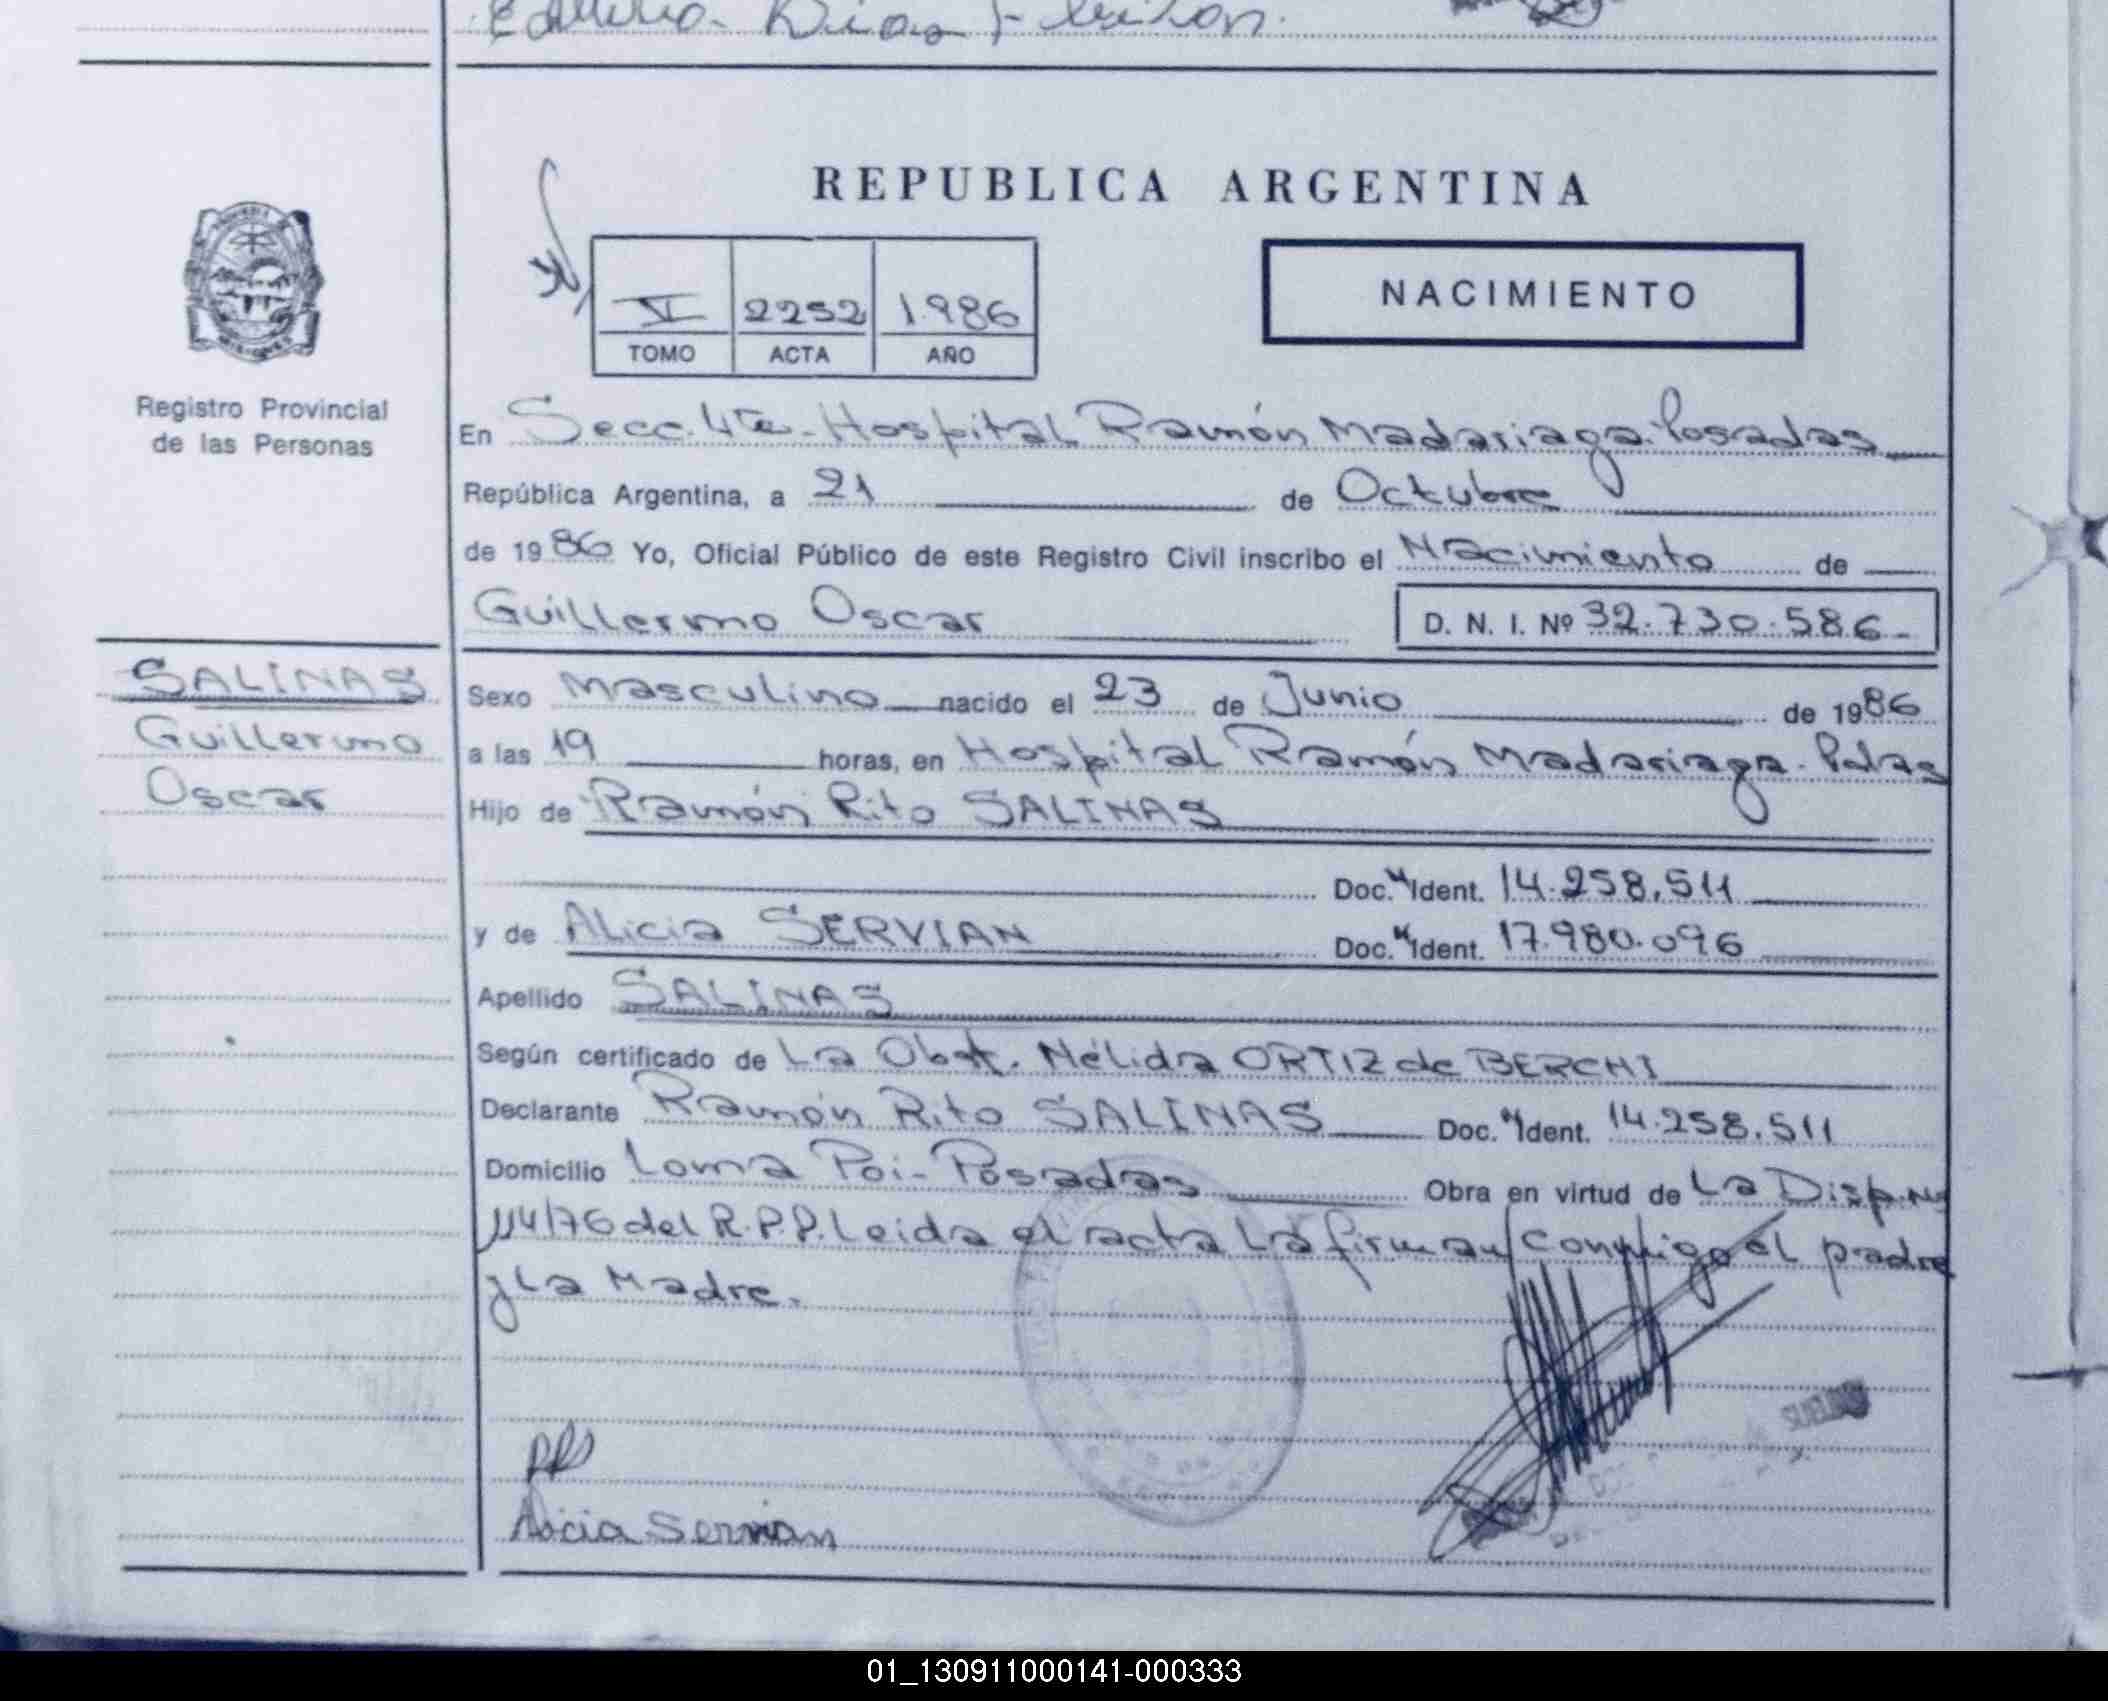 REPUBLICA ARGENTINA
VI 2252 1986
TOMO ACTA AÑO
NACIMIENTO
Registro Provincial
de las Personas
En Secc. 4ta - Hospital Ramón Madariaga. Posadas
República Argentina, a 21 de Octubre
de 1986 Yo, Oficial Público de este Registro Civil inscribo el Nacimiento de
Guillermo Oscar D. N. I. Nº 32.730.586-
SALINAS
Guillermo
Oscar
Sexo Masculino nacido el 23 de Junio de 1986
a las 19 horas, en Hospital Ramón Madariaga. Pdas
Hijo de Ramón Rito SALINAS
Doc. Ident. 14.258.511
y de Alicia SERVIAN Doc. Ident. 17.980.096
Apellido SALINAS
Según certificado de La Obst. Nélida ORTIZ de BERCHI
Declarante Ramón Rito SALINAS Doc. Ident. 14.258.511
Domicilio Loma Poi - Posadas Obra en virtud de La Disp. Nº
114/76 del R.P.P. Leida el acta La firman conmigo el padre
y La Madre.
Alicia Servian
SUELDO
01_130911000141-000333